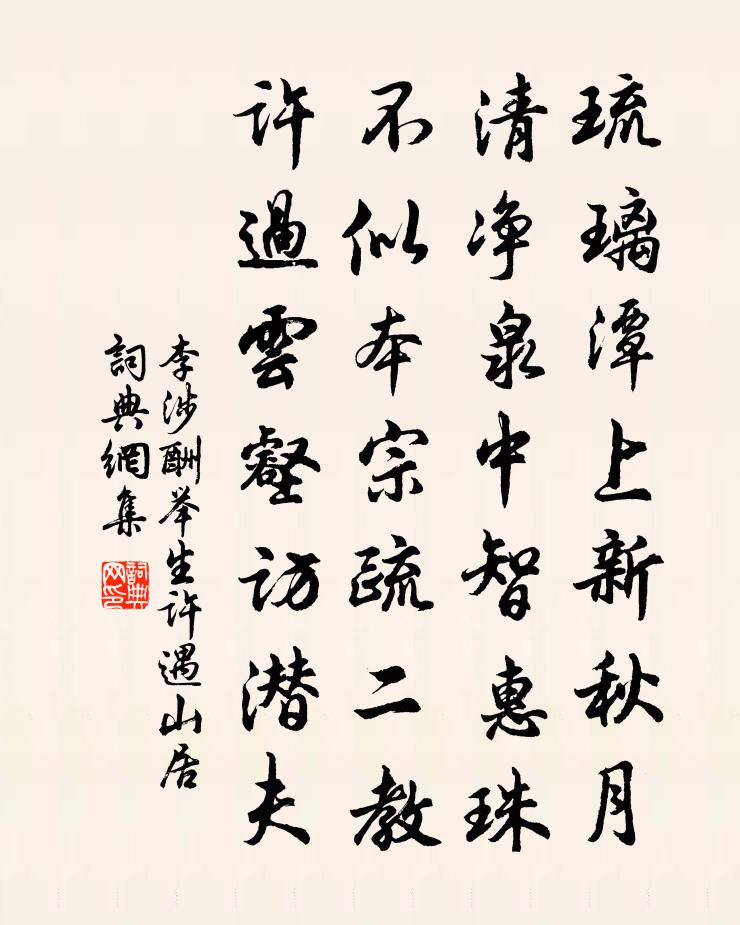 琉璃潭上新秋月
清净泉中智惠珠
不似本宗疏二教
许過雲壑访潜夫
李涉酬举生许遇山居
詞典網集
詞典网印